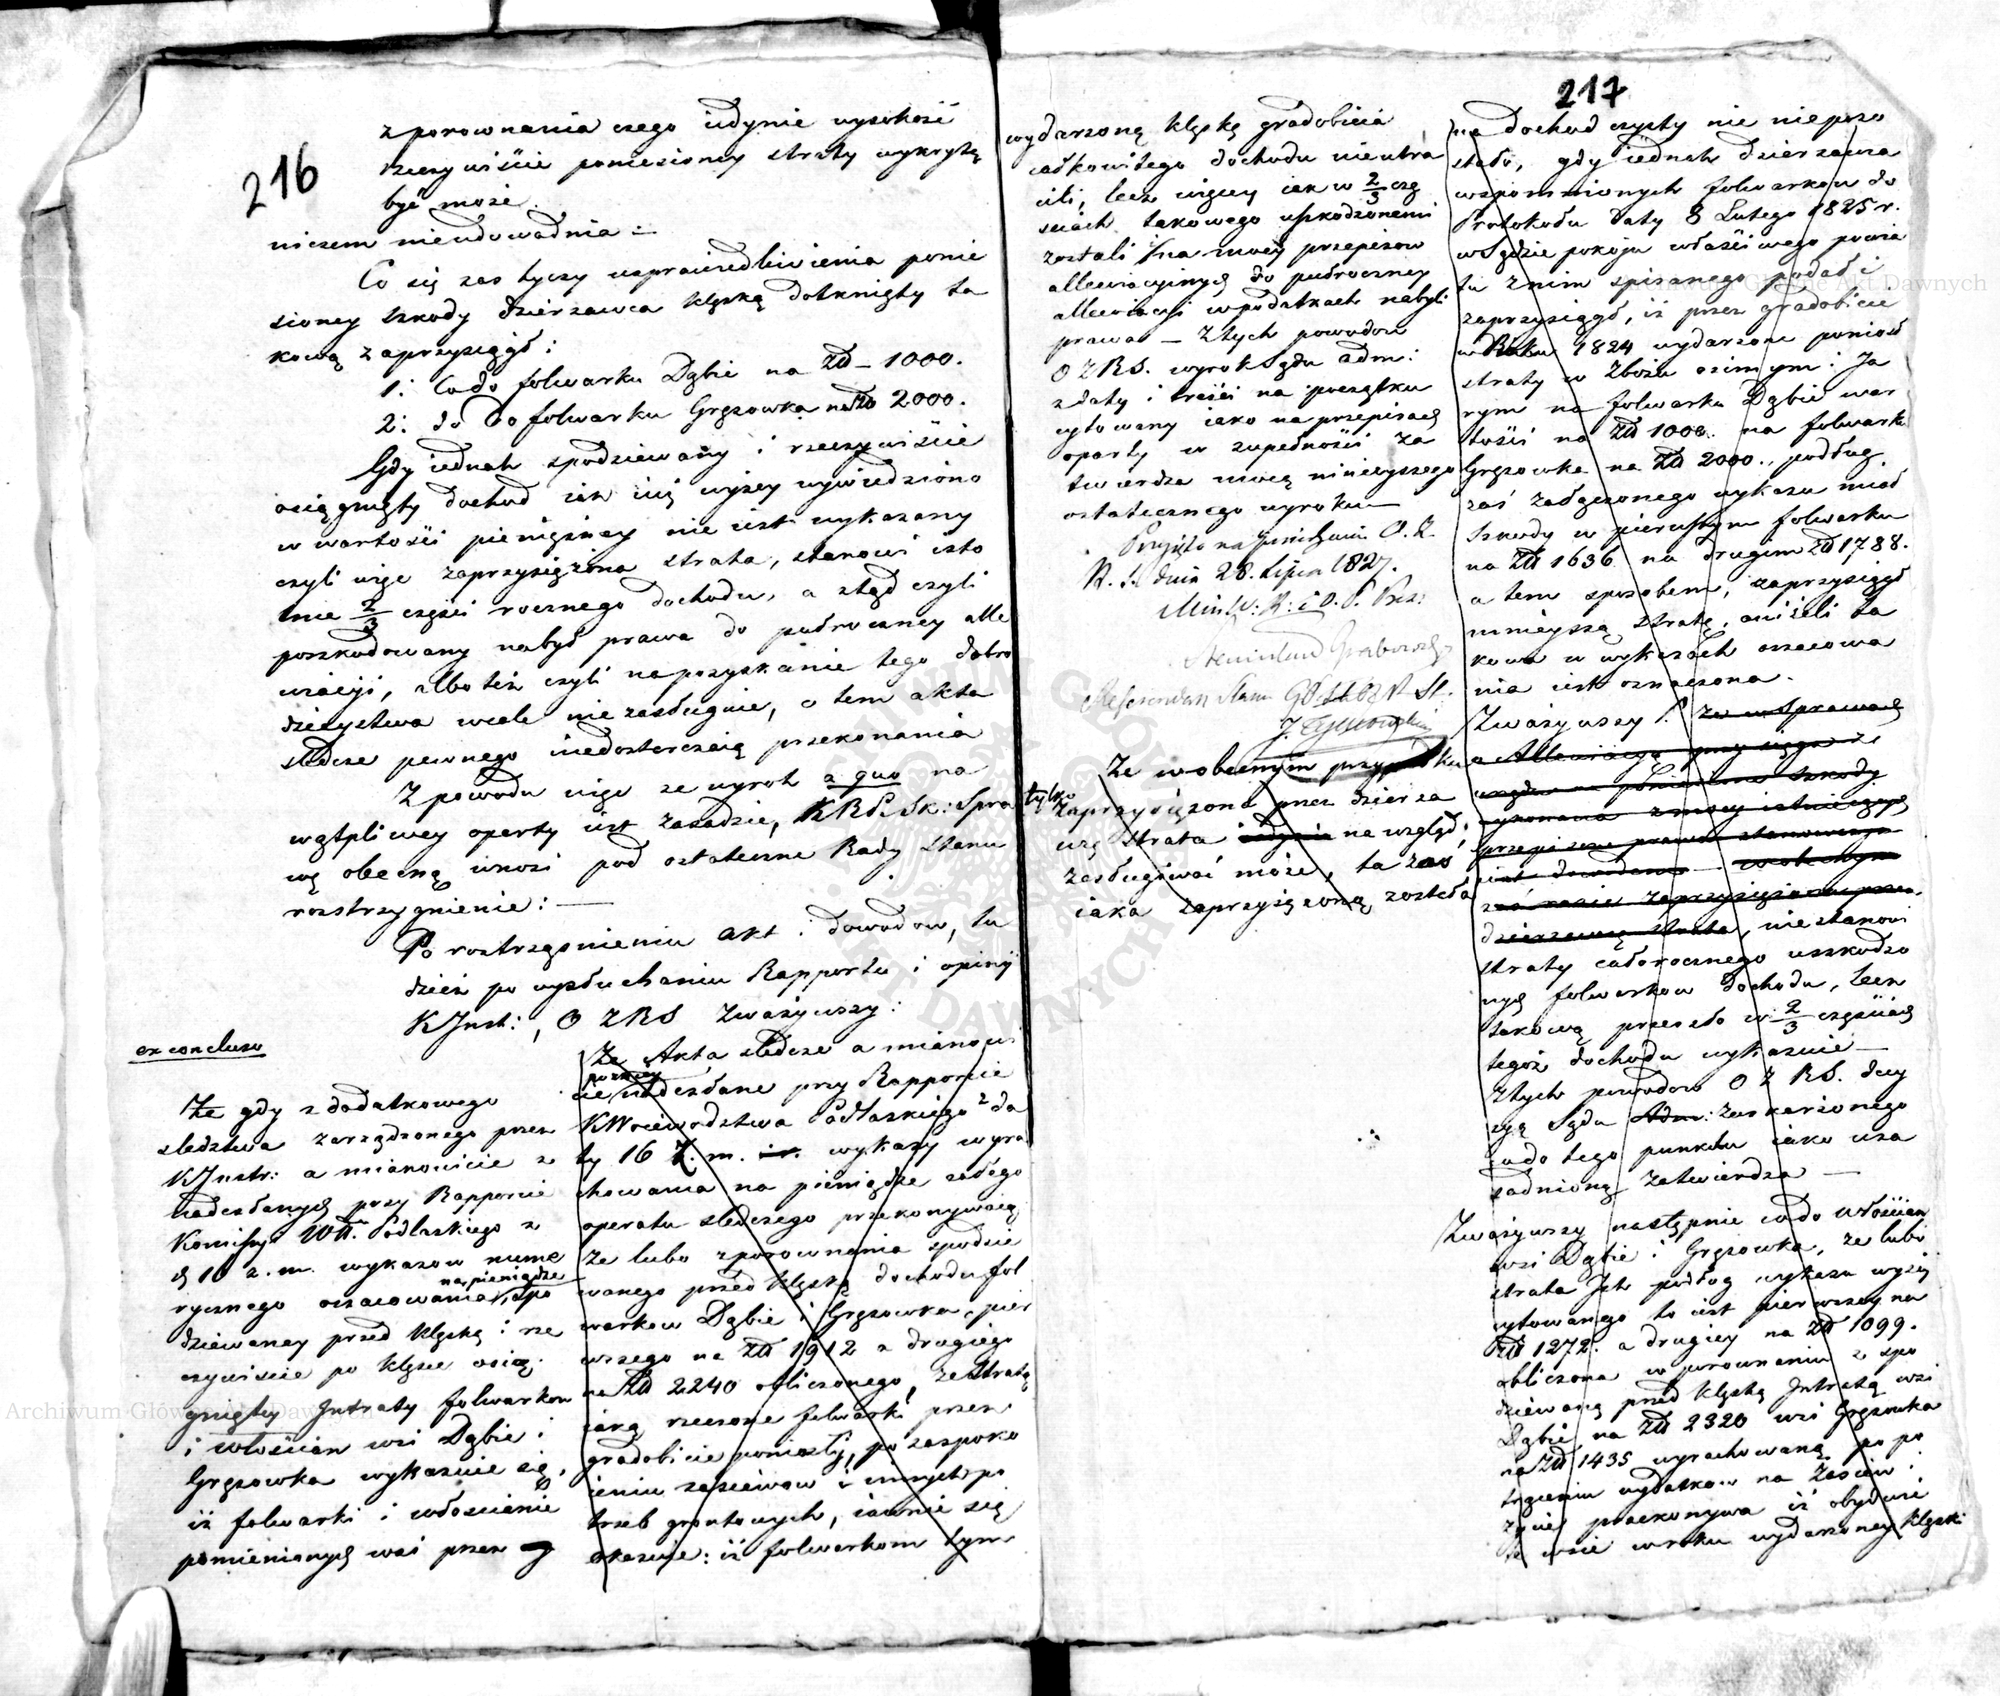 216
z porownania czego iedynie wysokość
rzeczywiście poniesioney straty wykrytą
być może.
niczem nieudowadnia :
Co się zas tyczy usprawiedliwienia ponie
sioney szkody dzierzawca klęską dotknięty ta
kową zaprzysiągł :
1: Co do folwarku Dąbie na Zł – 1000.
2: do do folwarku Gręzowka na Zł 2000.
Gdy iednak spodziewany i rzeczywiście
osiągnięty dochod iak iuż wyżey wywiedziono
w wartości pieniężney nie iest wykazany
czyli więc zaprzysiężona strata, stanowi isto
tnie 2/3 części rocznego dochodu, a ztąd czyli
poszkodowany nabył prawa do połroczney alle
wiacyi, albo też czyli na pozyskanie tego dobro
dzieystwa wcale nie zasługuie, o tem akta
śledcze pewnego niedostarczaią przekonania
Z powodu więc ze wyrok a quo na
wątpliwey oparty iest zasadzie, KRPiSk: Spra
wę obecną wnosi pod ostateczne Rady Stanu
rozstrzygnienie : —
Po roztrząśnieniu akt i dowodow, tu
dzież po wysłuchaniu Rapportu i opinij
KJnst:, O Z R S Zważywszy :
ex concluso
Że gdy z dodatkowego
sledztwa zarządzonego przez
KJnstr: a mianowicie z
nadesłanych przy Rapporcie
Kommissyi Wtt. Podlaskiego z
d 16 z. m. wykazow nume
rycznego oszacowania na pieniądze spo
dziewaney przed klęską i rze
czywiście po klęsce osią
gniętey Jntraty folwarkow
i włościan wsi Dąbie i
Gręzowka wykazuie się,
iż folwarki i włoscianie
pomienionych wsi przez
Ze Akta sledcze a mianowi
cie poźniey nadesłane przy Rapporcie
KWoiewodztwa Podlaskiego z da
ty 16 z. m. i r. wykazy wyra
chowania na pieniądze całego
operatu sledczego przekonywaią
że lubo z porownania spodzie
wanego przed klęską dochodu fol
warkow Dąbie i Gręzowka, pier
wszego na Zł 1912 a drugiego
na Zł 2240 obliczonego, ze stratą
iaką rzeczone folwarki przez
gradobicie poniosły, po zaspoko
ieniu zasiewow i innych po
trzeb gruntowych, iawnie się
okazuie: iż folwarkom tym
217
wydarzoną klęskę gradobicia
całkowitego dochodu nieutra
cili, lecz więcey iak w 2/3 czę
sciach takowego uszkodzonemi
zostali i na mocy przepisow
allewiacyinych do połroczney
allewiacyi w podatkach nabyli
prawa – Z tych powodow
O Z R S. wyrok Sądu adm:
z daty i treści na początku
cytowany iako na przepisach
oparty w zupełności za
twierdza mocą ninieyszego
ostatecznego wyroku —
Przyięto na posiedzeniu O. Z.
R. S. dnia 28. Lipca 1827.
Minister: W: i O. P. Prez:
Stanisław Grabowski
Referendarz Stanu
Ze w obecnym przypadku
tylko
zaprzysiężona przez dzierza
wcę strata iedynie na wzgląd
zasługiwać może, ta zaś
iaka zaprzysiężoną została
na dochod czysty nic niepozo
stało, gdy iednak dzierzawca
wspomnionych folwarkow do
Protokołu daty 8 Lutego 1825 r.
w Sądzie pokoju właściwego powia
tu z nim spisanego podał i
zaprzysiągł, iż przez gradobicie
w Roku 1824 wydarzone poniosł
straty w zbożu ozimym i Ja
rym na folwarku Dąbie war
tości na Zł 1000. na folwarku
Gręzowka na Zł 2000., podług
zaś załączonego wykazu miał
szkody w pierwszym folwarku
na Zł 1636 na drugim Zł 1788.
a tem sposobem, zaprzysiągł
mnieyszą stratę, aniżeli ta
kowa w wykazach oszacowa
nia iest oznaczona.
Zważywszy że w Sprawach
o Allewiacyą
dzierzawcę strata, niestanowi
straty całorocznego uszkodzo
nych folwarkow dochodu, lecz
takową przeszło w 2/3 częściach
tegoż dochodu wykazuie —
Z tych powodow O Z R S. decy
zyą Sądu Adm: zaskarżonego
co do tego punktu iako uza
sadnioną zatwierdza —
Zważywszy następnie co do włościan
wsi Dąbie i Gręzowka, ze lubo
strata Ich podług wykazu wyżey
cytowanego to iest pierwszey na
Zł 1272. a drugiey na Zł 1099.
obliczona w porownaniu z spo
dziewaną przed klęską Jntratą wsi
Dąbie na Zł 2320 wsi Gręzowka
na Zł 1435 wyrachowaną po po
trąceniu wydatkow na Zasiew i
życie przekonywa iż obydwie
te wsie w roku wydarzoney klęski